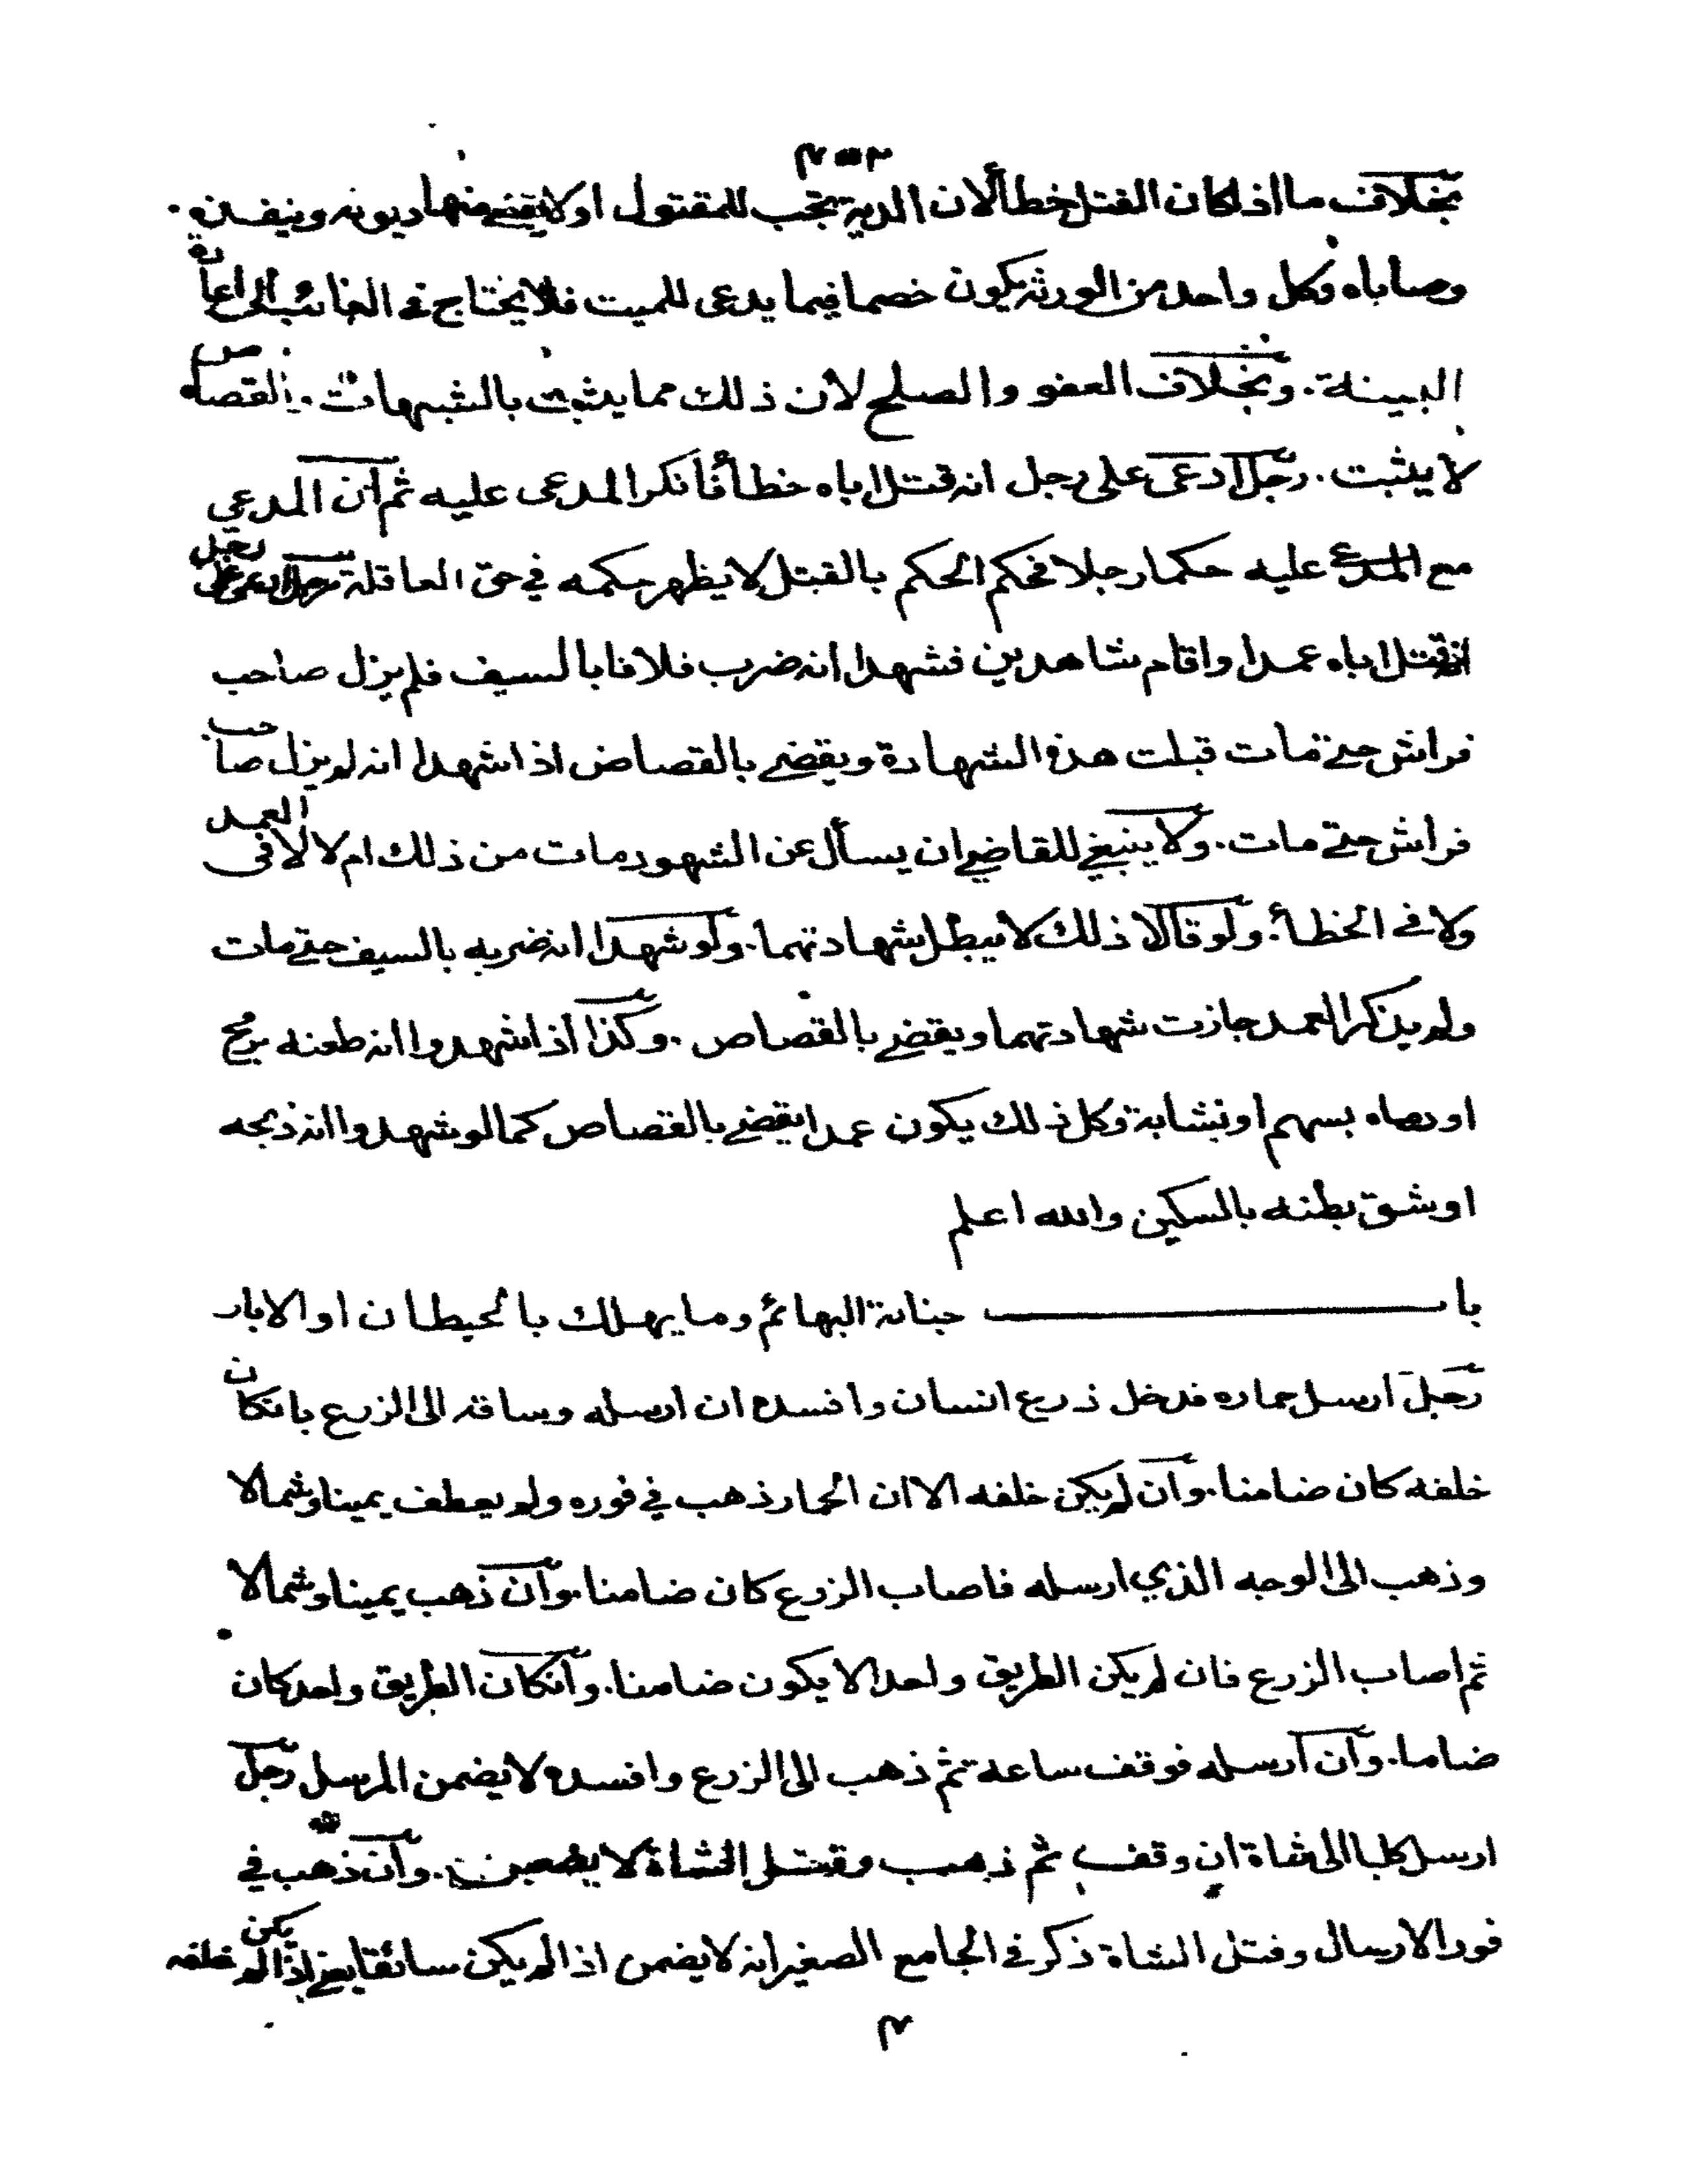 بخلاف ما اذا كان القتل خطأ لان الدية تجب للمقتول اولا يقضے منها ديونه وينفذ به
وصاياه وكل واحد من الورثة يكون خصما فيما يدعى للميت فلا يحتاج فى الغائب الى اعادة
البينة. وبخلاف العفو والصلح لأن ذلك مما يثبت بالشبهات. القصاص
لا يثبت. رجل ادعى على رجل انه قتل اباه خطأ فأنكر المدعى عليه ثم أن المدعي
مع المدعى عليه حكما رجلا فحكم الحكم بالقتل لا يظهر حكمه في حق العاقلة رجل ادعى على رجل
انه قتل اباه عمدا واقام شاهدين فشهدا انه ضرب فلانا بالسيف فلم يزل صاحب
فراش حتى مات قبلت هذه الشهادة ويقضے بالقصاص اذا شهدا انه لم يزل صاحب
فراش حتے مات. ولا ينبغي للقاضي ان يسأل عن الشهود مات من ذلك ام لا لا فى العمد
ولا فے الخطأ. ولو قالا ذلك لا يبطل شهادتهما. ولو شهدا انه ضربه بالسيف حتے مات
ولم يذكر العمد جازت شهادتهما ويقضے بالقصاص. وكذا اذا شهدوا انه طعنه برمح
او رماه بسهم او نشابة وكل ذلك يكون عمدا يقضے بالقصاص كما لو شهدوا انه ذبحه
او شق بطنه بالسكين والله اعلم
باب جناية البهائم وما يهلك بالحيطان او الابار
رجل ارسل حماره فدخل زرع انسان وافسده ان ارسله وساقه الى الزرع بان كان
خلفه كان ضامنا. وان لم يكن خلفه الا ان الحمار ذهب في فوره ولم يعطف يمينا وشمالا
وذهب الى الوجه الذي ارسله فاصاب الزرع كان ضامنا. وان ذهب يمينا وشمالا
ثم اصاب الزرع فان لم يكن الطريق واحدا لا يكون ضامنا. وان كان الطريق واحد كان
ضاما. وان ارسله فوقف ساعة ثم ذهب الى الزرع وافسده لا يضمن المرسل رجل
ارسل كلبا الى شاة ان وقف ثم ذهب وقتل الشاة لا يضمن. وان ذهب في
فور الارسال وقتل الشاة ذكر فے الجامع الصغير انه لا يضمن اذا لم يكن سائقا يعنے اذا لم يكن خلفه